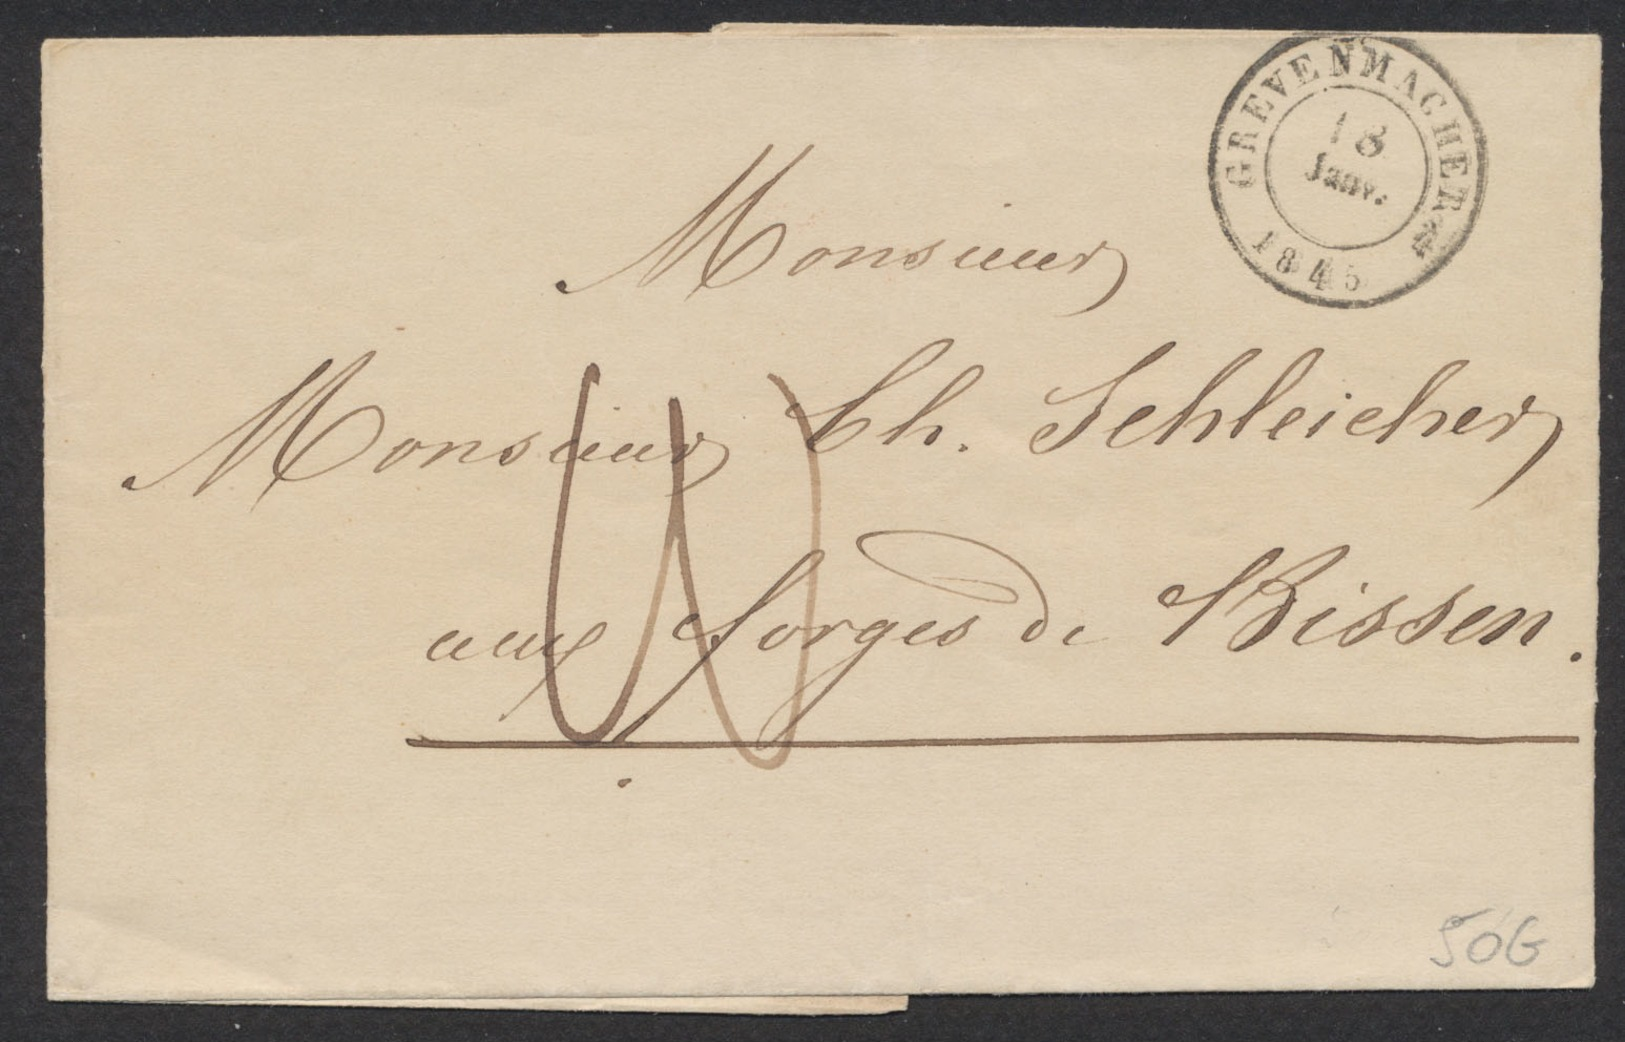 GREVENMACHER
18
Janv.
1845
Monsieur
Monsieur Ch. Schleicher
aux forges de Bissen.
50G